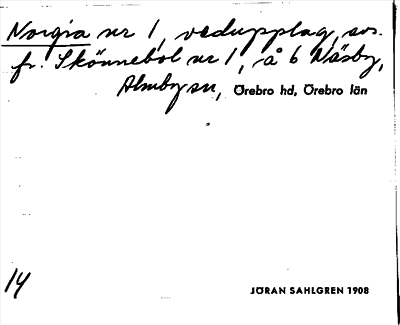 Norgia nr 1, vedupplag, sos.
fr. Skönnebol nr 1, å 6 Näsby,
Almby sn, Örebro hd, Örebro län
14
JÖRAN SAHLGREN 1908